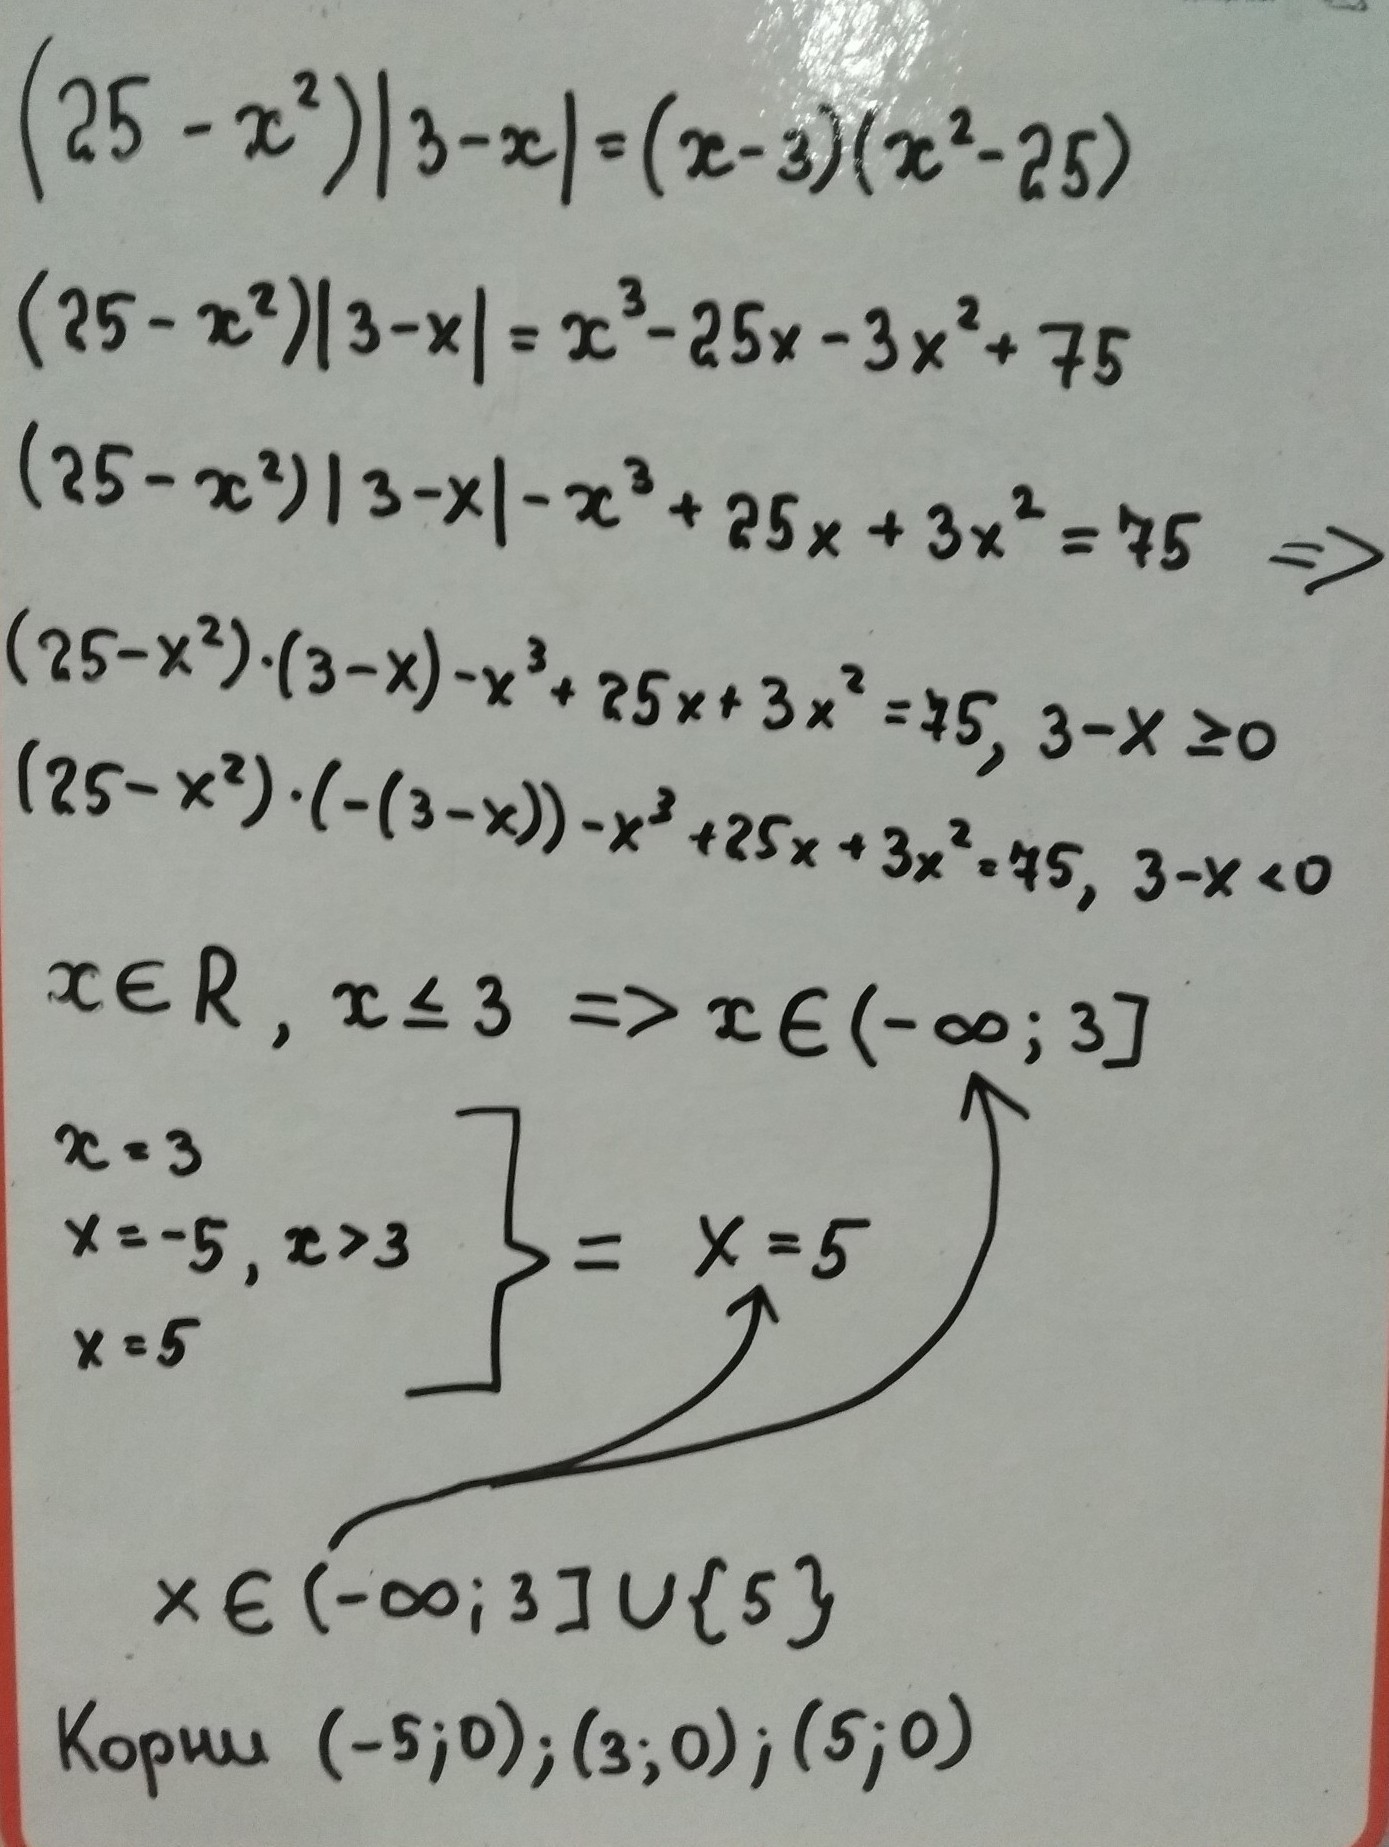 (25 - x²)|3-x|=(x-3)(x²-25)
(25-x²)|3-x|=x³-25x-3x²+75
(25-x²)|3-x|-x³+25x+3x²=75 =>
(25-x²)·(3-x)-x³+25x+3x²=75, 3-x≥0
(25-x²)·(-(3-x))-x³+25x+3x²=75, 3-x<0
x∈R, x≤3 => x∈(-∞;3]
x=3
x=-5, x>3 } = x=5
x=5
x∈(-∞;3]∪{5}
Корни (-5;0);(3;0);(5;0)